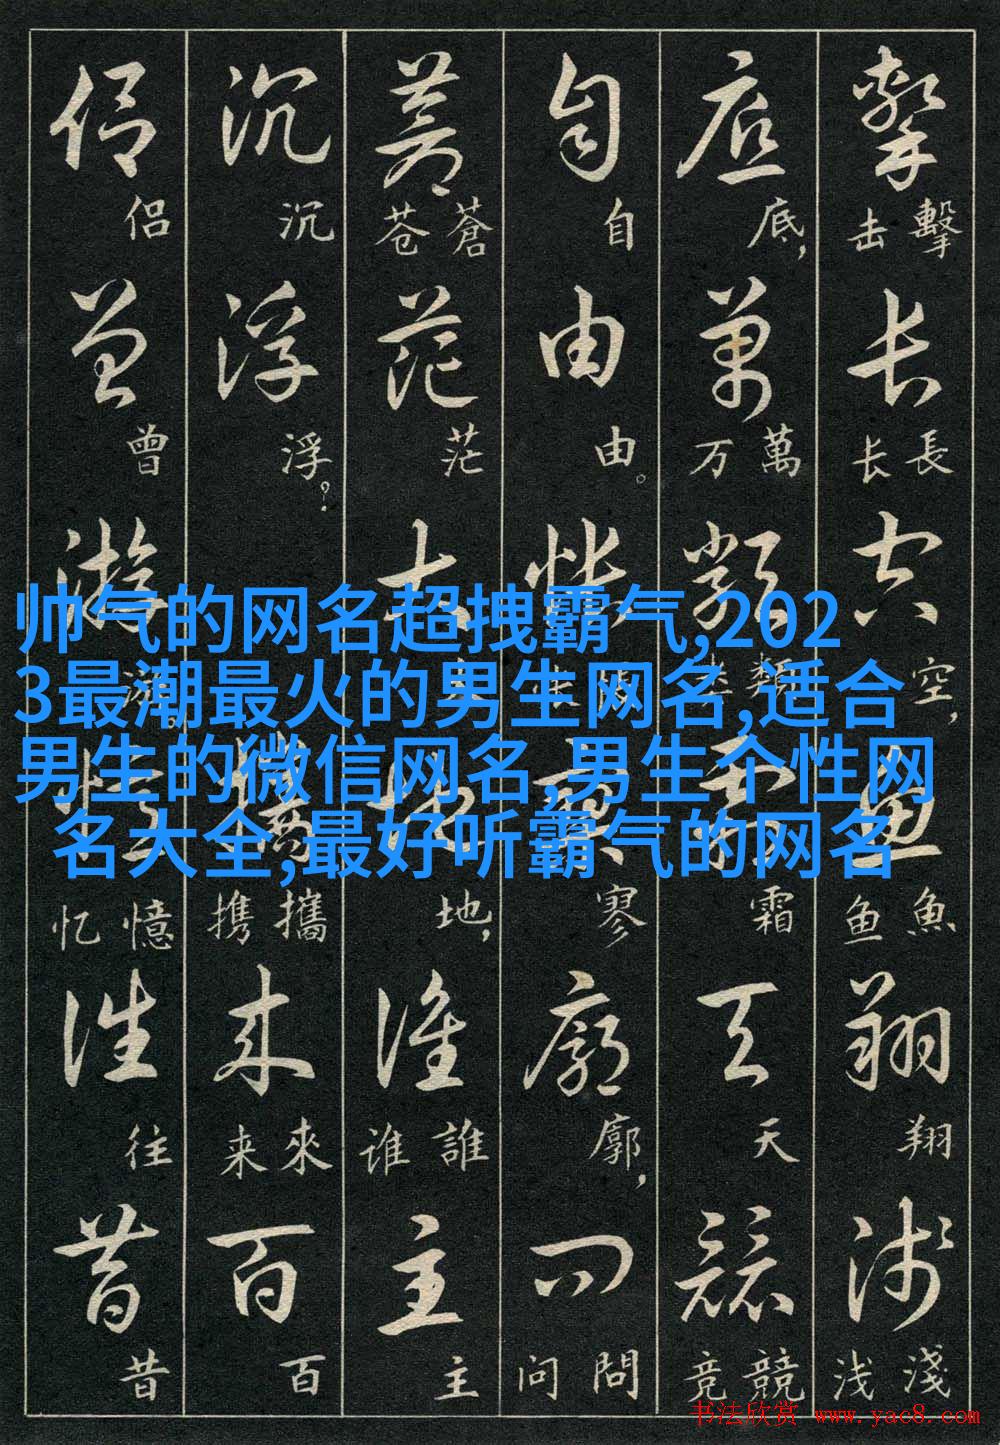 帅气的网名超拽霸气,202
3最潮最火的男生网名,适合
男生的微信网名,男生个性网
名大全,最好听霸气的网名
擊 击 擊
長 长 長
空 空，
魚 鱼 魚
翔 翔
淺 浅 淺
底 底，
萬 万 萬
類 类 類
霜 霜
天 天
競 竞 競
自 自
由 由。
悵
寥 寥
廓 廓，
問 问 問
蒼 苍 蒼
茫 茫
大
地 地，
誰 谁 誰
主 主
沉 沉
浮 浮？
攜 携 攜
來 来 來
百 百
侣 侣
曾 曾
游 游。
憶 忆 憶
往 往
昔 昔
书法欣赏 www.yac8.com